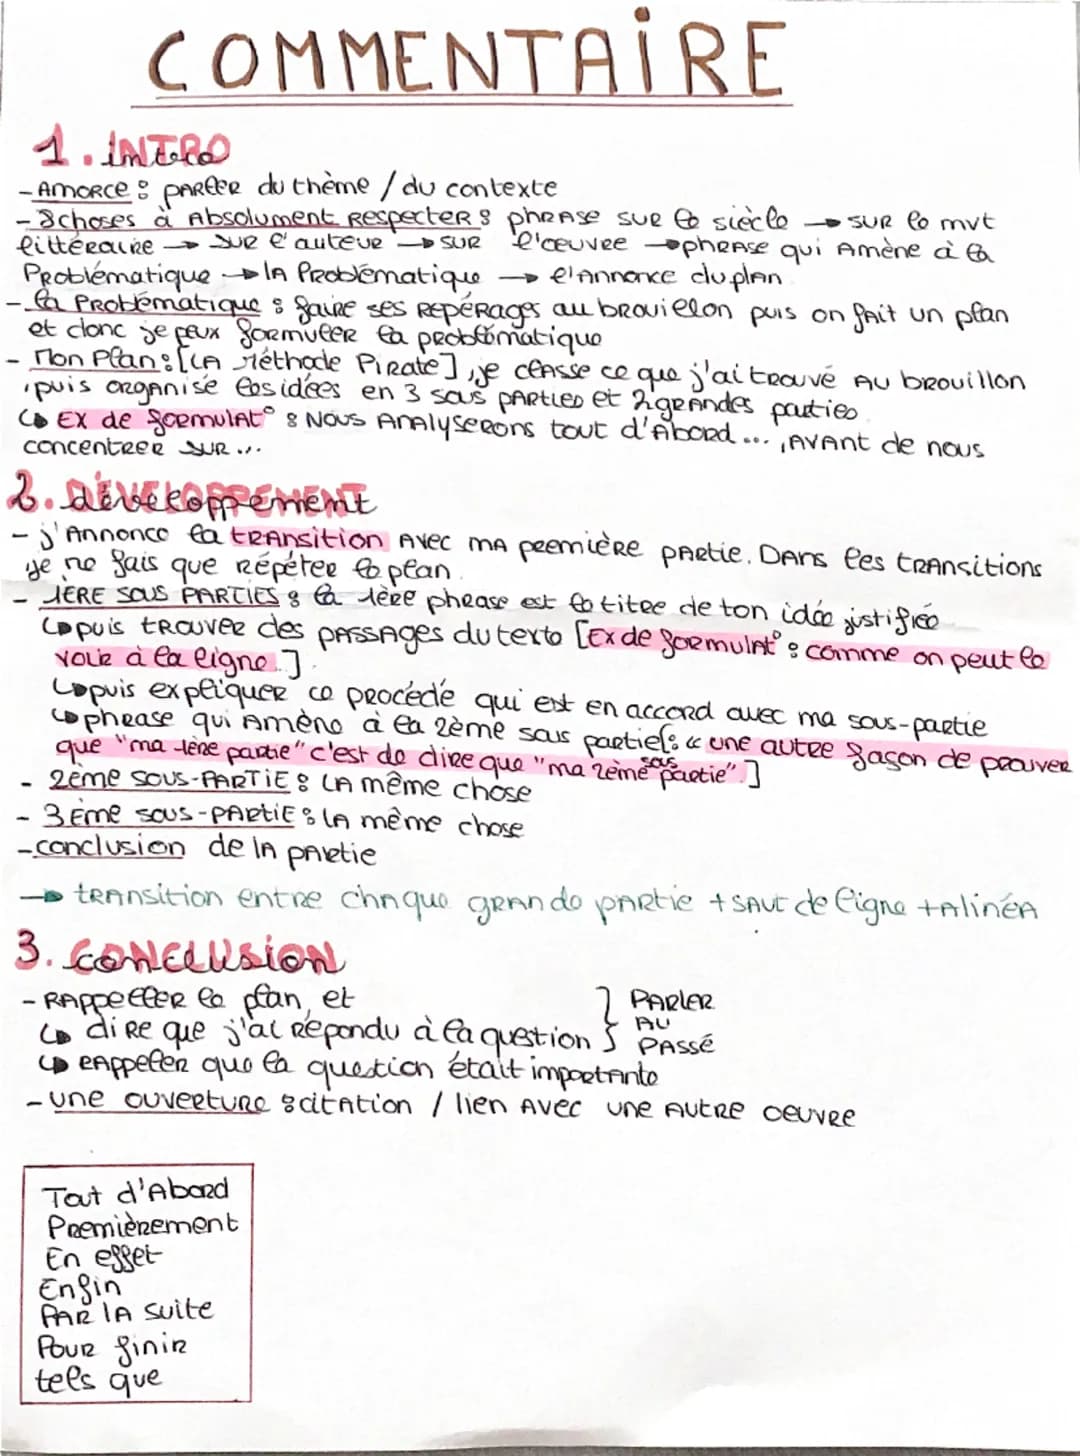 COMMENTAIRE
1. INTRO
intro
- AMORCE : parler du thème / du contexte
- 8 choses à Absolument Respecter : phrase sur le siècle → sur le mvt
littéraire → sur l'auteur → sur l'œuvre → phrase qui Amène à la
Problématique → la Problématique → l'Annonce du plan
- la Problématique : faire ses Repérages au brouillon puis on fait un plan
et donc je peux formuler la problématique
- Mon Plan : [La Méthode Pirate], je classe ce que j'ai trouvé au brouillon
, puis organise les idées en 3 sous parties et 2 grandes parties
↳ Ex de formulat° : Nous Analyserons tout d'Abord ..., Avant de nous
concentrer sur ...
2. DÉVELOPPEMENT
développement
- j'Annonce la transition Avec ma première partie. Dans les transitions
je ne fais que répéter le plan.
- 1ÈRE SOUS PARTIES : la 1ère phrase est le titre de ton idée justifiée
↳ puis trouver des passages du texte [Ex de formulat° : comme on peut le
voir à la ligne .]
↳ puis expliquer ce procédé qui est en accord avec ma sous-partie
↳ phrase qui Amène à la 2ème sous partie [: « une autre façon de prouver
que "ma 1ère partie" c'est de dire que "ma 2ème sous partie".]
- 2ème SOUS-PARTIE : la même chose
- 3Ème SOUS-PARTIE : la même chose
- conclusion de la partie
→ transition entre chaque grande partie + saut de ligne + alinéa
3. CONCLUSION
conclusion
- Rappeller le plan, et
↳ dire que j'ai répondu à la question } PARLER AU PASSÉ
↳ rappeler que la question était importante
- une ouverture : citation / lien avec une autre oeuvre
Tout d'Abord
Premièrement
En effet
Enfin
Par la suite
Pour finir
tels que